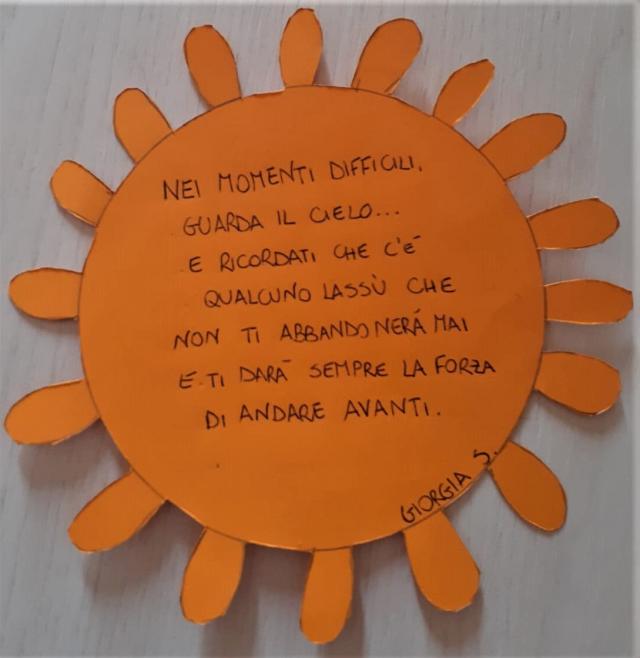 NEI MOMENTI DIFFICILI,
GUARDA IL CIELO...
E RICORDATI CHE C'È
QUALCUNO LASSÙ CHE
NON TI ABBANDONERÁ MAI
E TI DARÀ SEMPRE LA FORZA
DI ANDARE AVANTI.
GIORGIA S.